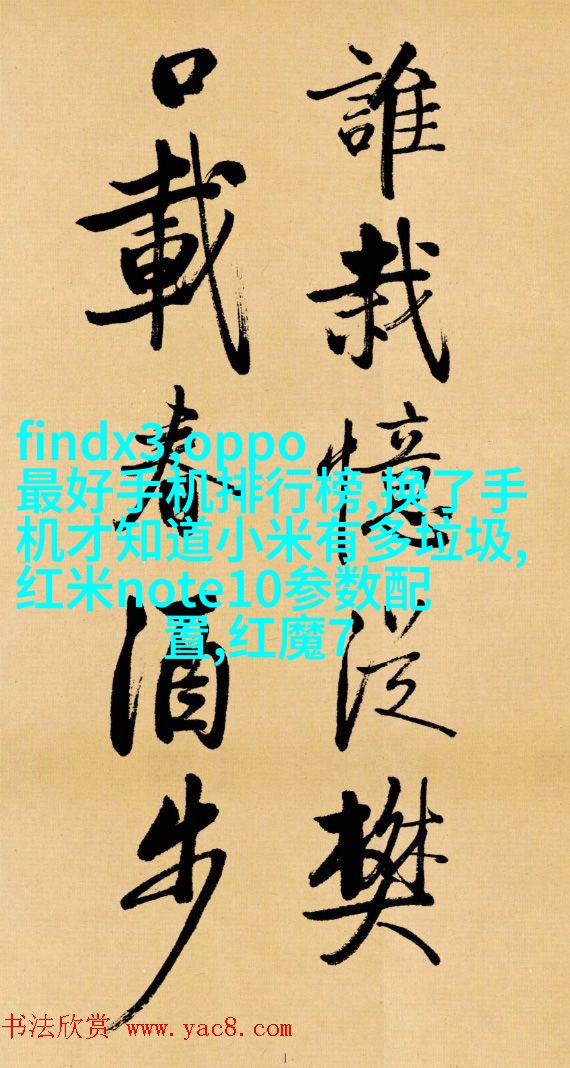 誰栽憶從樊
口載春酒步
findx3,oppo
最好手机排行榜,换了手
机才知道小米有多垃圾,
红米note10参数配
置,红魔7
书法欣赏 www.yac8.com